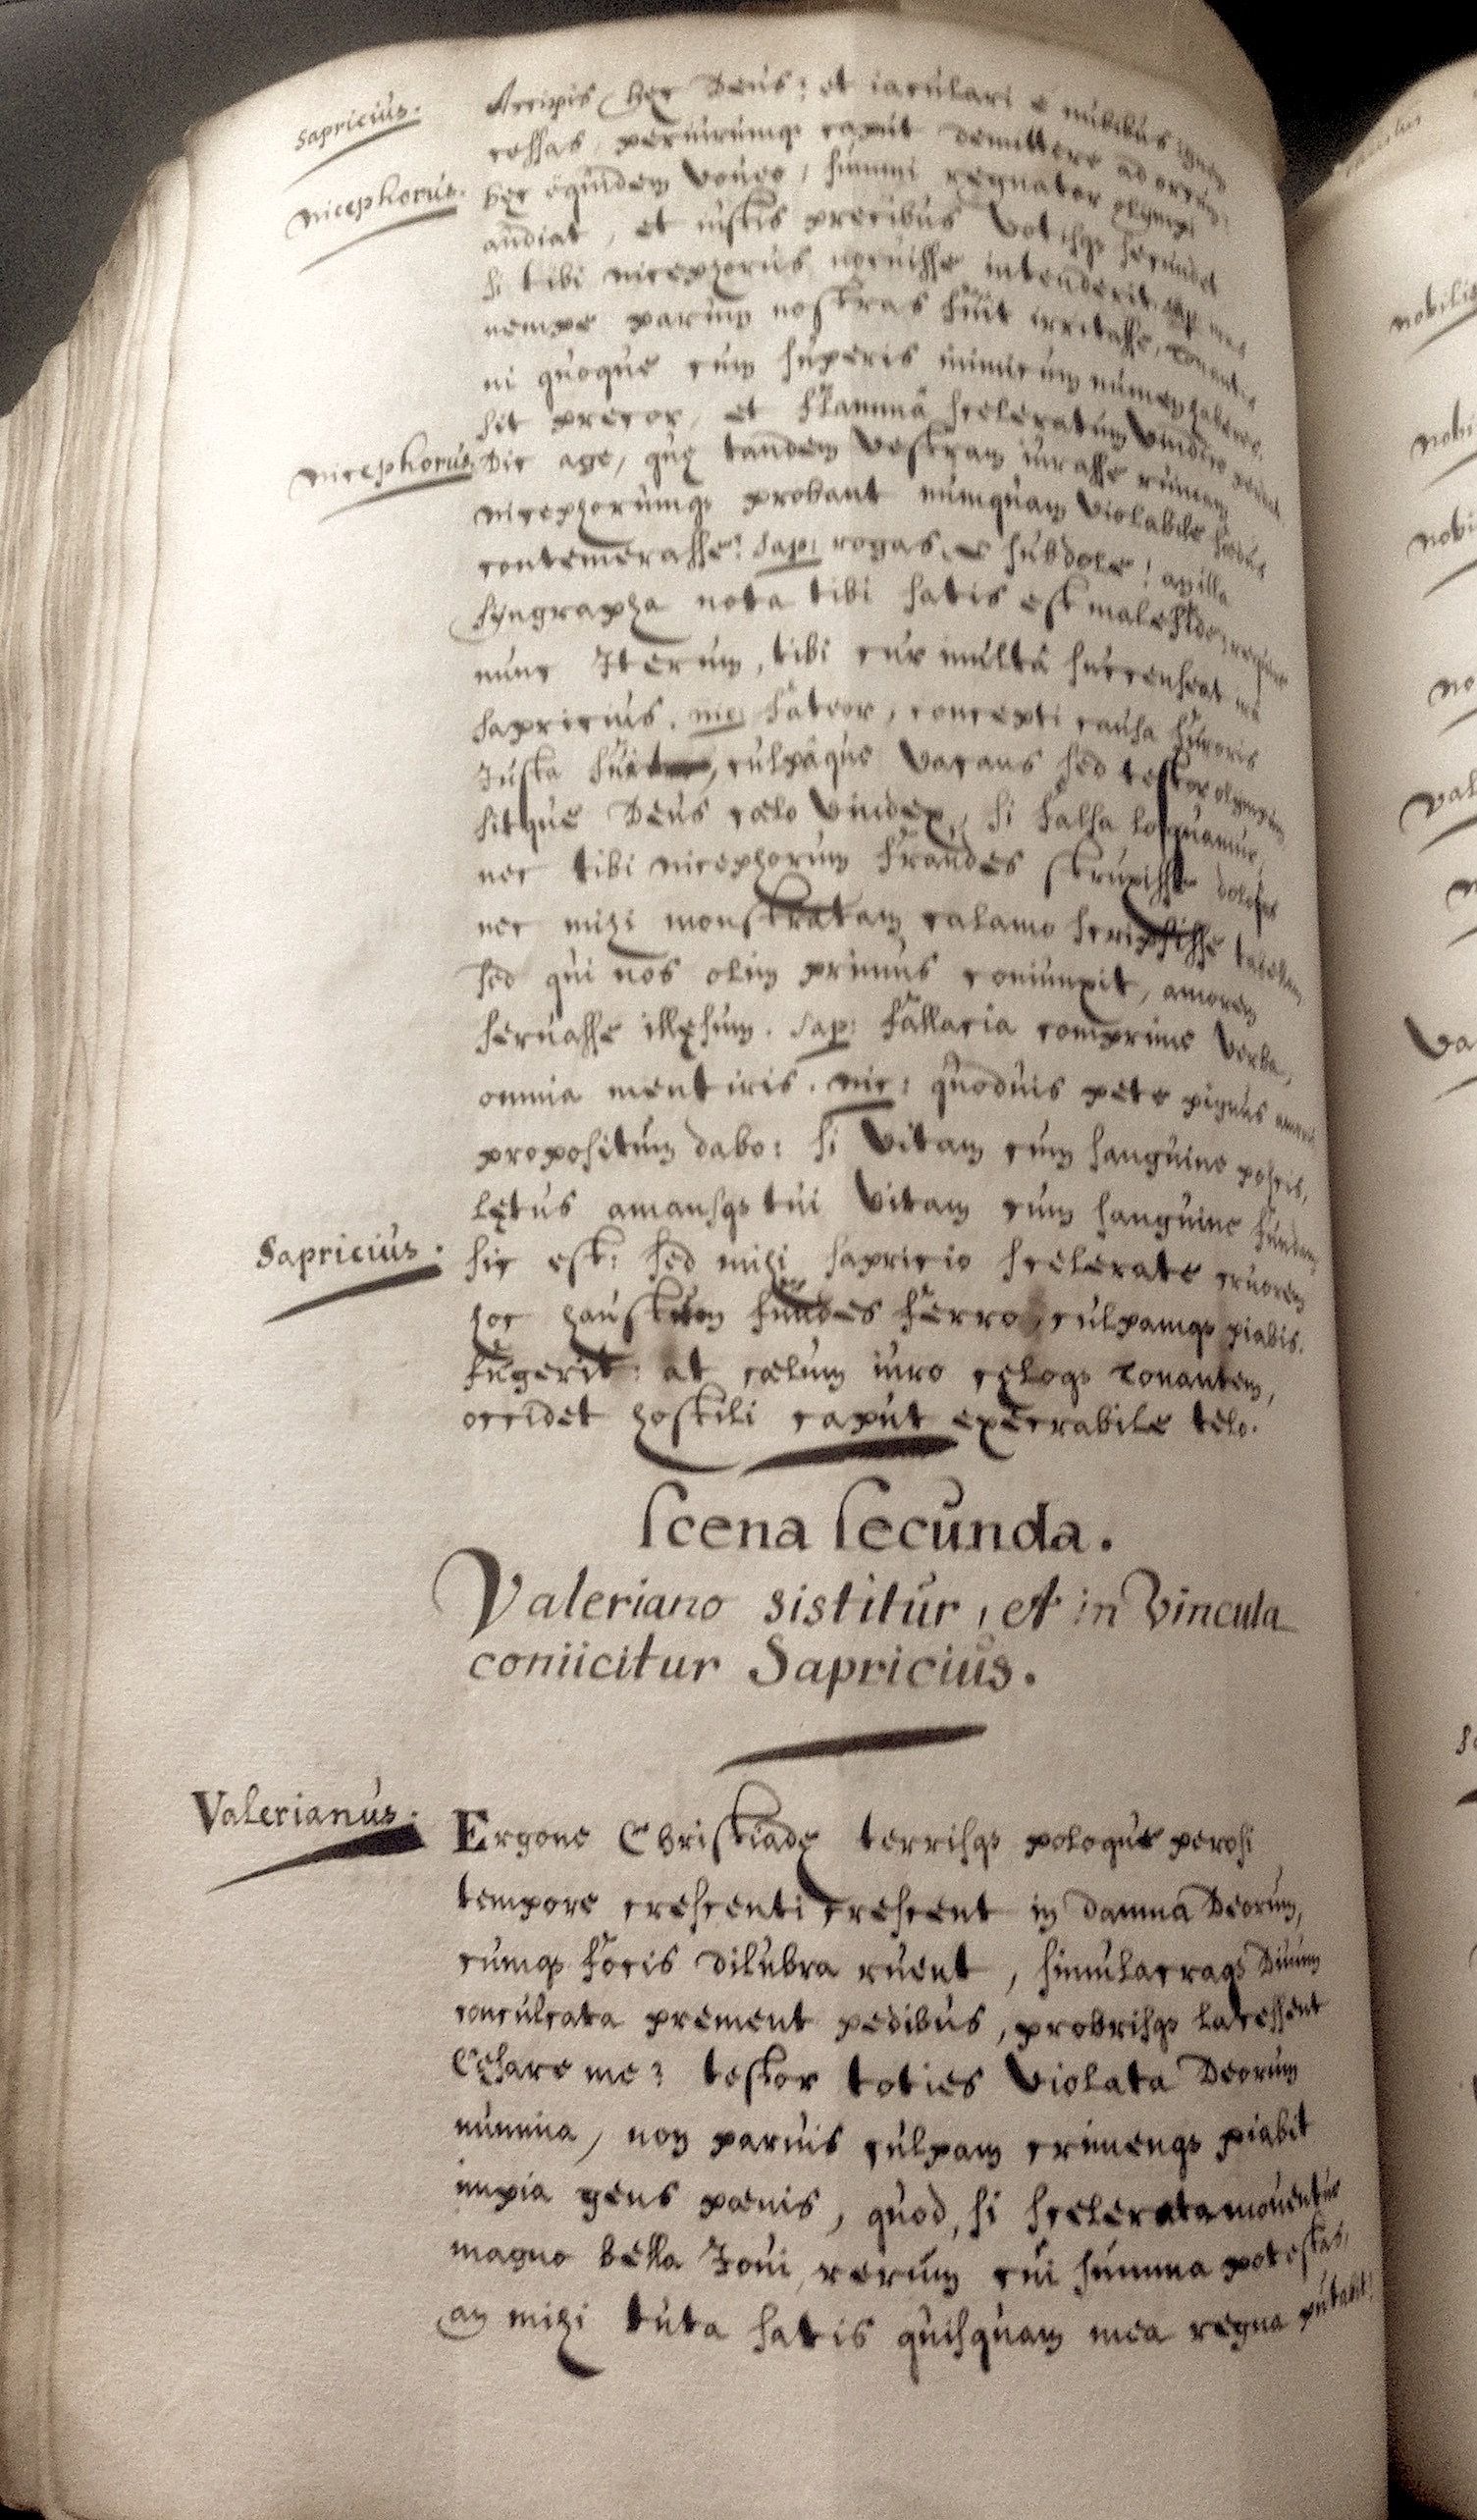 Sapricius. Accipis hęc Deus? et iaculari è nubibus ignem
cessas, periurumq3 caput demittere ad orcum?
Nicephorus. hęc equidem voueo, summi regnator olympi
audiat, et iustis precibus votisq3 secundet
si tibi nicephorus nocuisse intenderit.
nempe parum nostras fuit irritasse, tonantis
ni quoque cum superis inimicum numen haberes.
sit precor, et flammâ sceleratum vindice
Nicephorus. Dic age, quę tandem vestram iurasse ruinam
nicephorumq3 probant numquam violabile fœdus
contemerasse? Sap: rogas, ô subdole! an illa
syngrapha nota tibi satis est malefide; require
nunc Iterum, tibi cur multâ succenseat irâ
sapricius. nic: fateor, concepti causa furoris
Iusta fuit, culpâque vacans sed testor olympum
sitque Deus cælo vindex, si falsa loquamur,
nec tibi nicephorum fraudes struxisse dolosas
nec mihi monstratam calamo scripsisse tabellam
sed qui nos olim primus coniunxit, amorem
seruasse illęsum. Sap: fallacia comprime verba,
omnia mentiris. nic: quoduis pete pignus amoris
propositum dabo: si vitam cum sanguine poscis,
lętus amansq3 tui vitam cum sanguine fundam
Sapricius. sic est: sed mihi sapricio scelerate cruorem
hoc haustum fundes ferro, culpamq3 piabis.
fugerit: at cælum iuro cęloq3 Tonantem,
occidet hostili caput execrabile telo.
Scena Secunda.
Valeriano sistitur, et in Vincula
coniicitur Sapricius.
Valerianus. Ergone Christiadę terrisq3 poloque perosi
tempore crescenti crescent in damna Deorum,
cumq3 focis dilubra ruent, simulacraq3 Diuum
conculcata prement pedibus, probrisq3 lacessent
Cęsare me? testor toties violata Deorum
numina, non paruis culpam crimenq3 piabit
impia gens pœnis, quod, si scelerata mouentur
magno bella Ioui, rerum cui summa potestas,
an mihi tuta satis quisquam mea regna putabit!
nobilis
nobi
nobi
no
val
Va